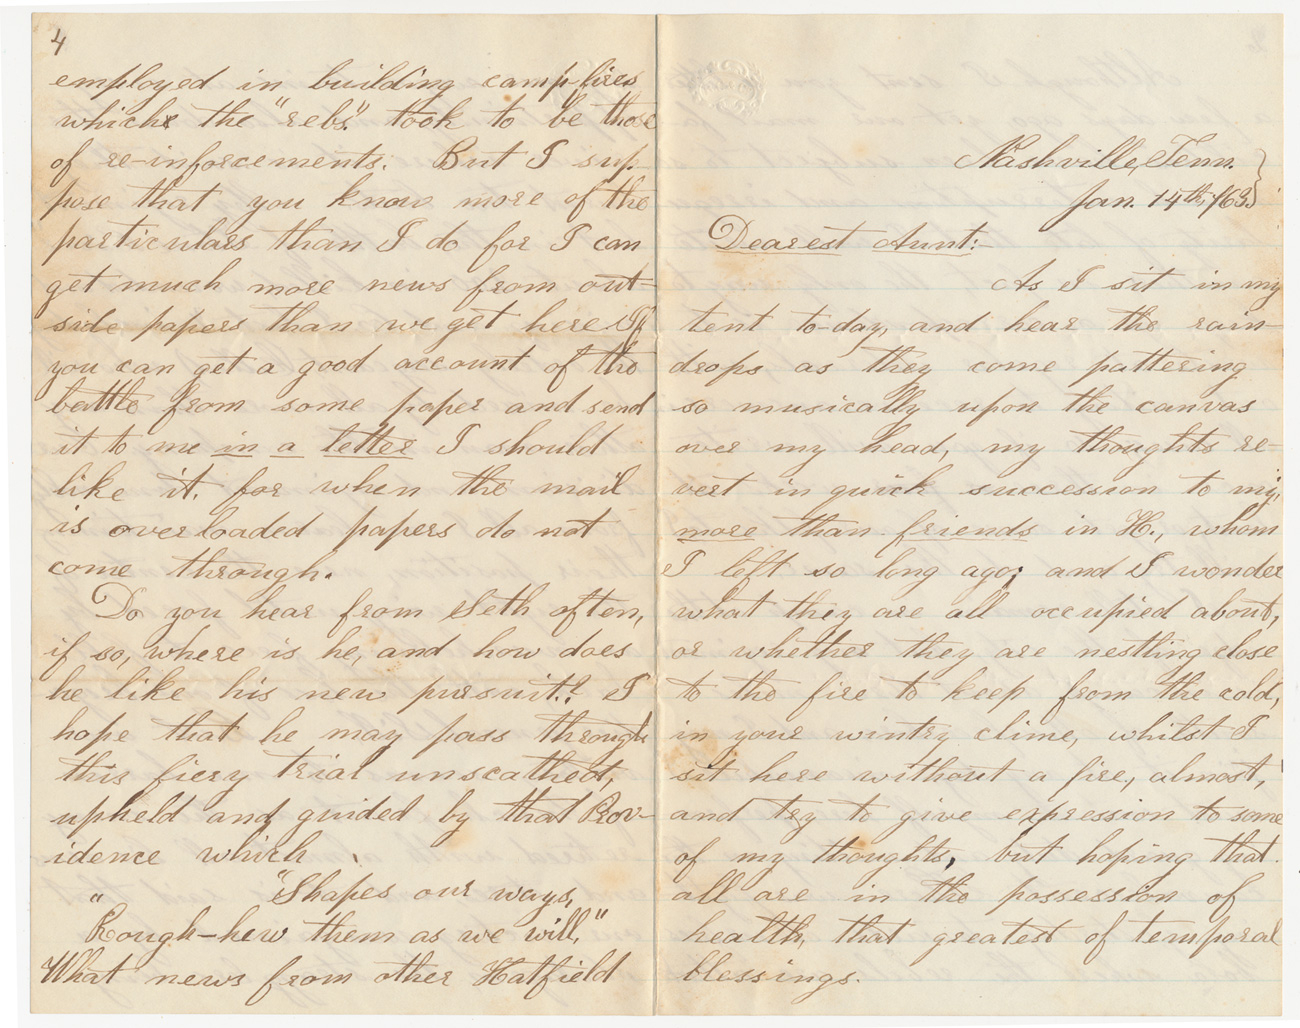 4
employed in building camp fires
which the "rebs". took to be those
of re-inforcements. But I sup-
pose that you know more of the
particulars than I do for I can
get much more news from out-
side papers than we get here. If
you can get a good account of the
battle from some paper and send
it to me in a letter I should
like it. for when the mail
is overloaded papers do not
come through.
Do you hear from Seth often,
if so, where is he, and how does
he like his new pursuit? I
hope that he may pass through
this fiery trial unscathed,
upheld and guided by that Prov-
idence which
" "Shapes our ways,
Rough-hew them as we will,"
What news from other Hatfield
Nashville, Tenn.
Jan. 14th, /63.
Dearest Aunt:-
As I sit in my
tent to-day, and hear the rain-
drops as they come pattering
so musically upon the canvas
over my head, my thoughts re-
vert in quick succession to my,
more than friends in H., whom
I left so long ago; and I wonder
what they are all occupied about,
or whether they are nestling close
to the fire to keep from the cold,
in your wintry clime, whilst I
sit here without a fire, almost,
and try to give expression to some
of my thoughts, but hoping that
all are in the possession of
health, that greatest of temporal
blessings.